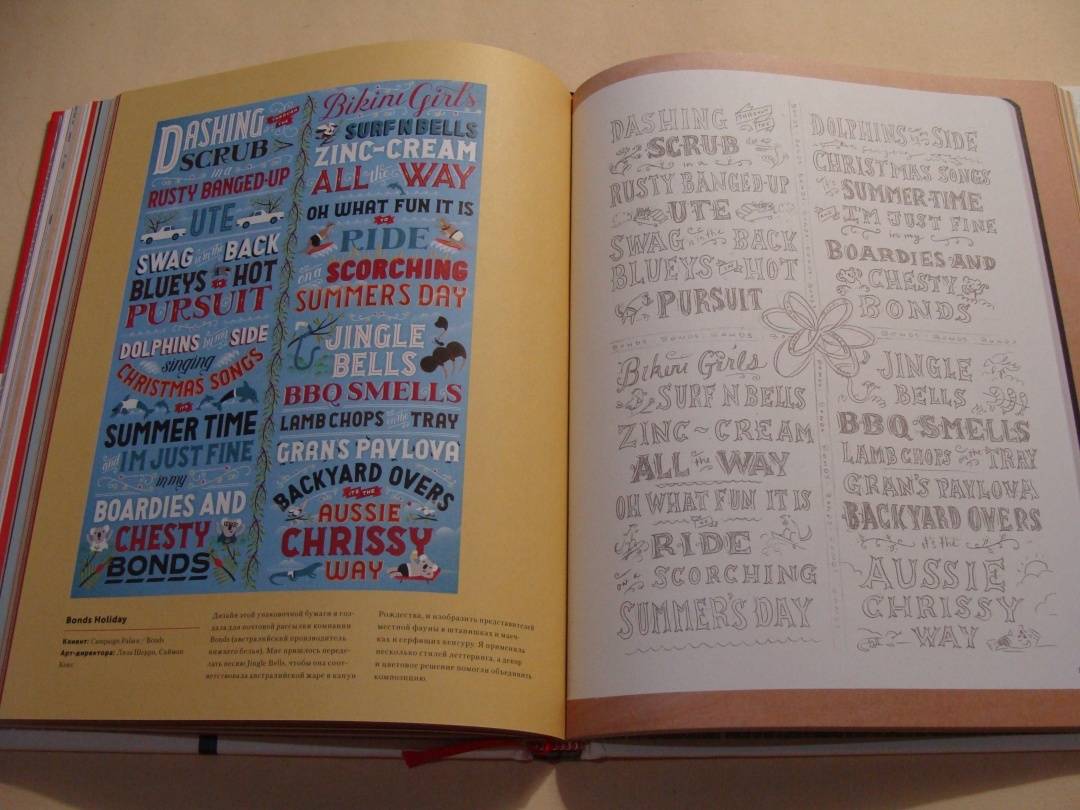 DASHING
THROUGH THE
SCRUB
in a
RUSTY BANGED-UP
UTE
SWAG in the BACK
BLUEYS HOT
PURSUIT
DOLPHINS by my SIDE
singing
CHRISTMAS SONGS
SUMMER TIME
and I'M JUST FINE
in my
BOARDIES AND
CHESTY
BONDS
Bikini Girls
SURF N BELLS
ZINC-CREAM
ALL the WAY
OH WHAT FUN IT IS
TO
RIDE
on a SCORCHING
SUMMERS DAY
JINGLE
BELLS
BBQ SMELLS
LAMB CHOPS on the TRAY
GRAN'S PAVLOVA
BACKYARD OVERS
IT'S THE
AUSSIE
CHRISSY
WAY
Bonds Holiday
Клиент: Campaign Palace / Bonds
Арт-директора: Лиза Шерри, Саймон
Кокс
Дизайн этой упаковочной бумаги я соз-
дала для почтовой рассылки компании
Bonds (австралийский производитель
нижнего белья). Мне пришлось переде-
лать песню Jingle Bells, чтобы она соот-
ветствовала австралийской жаре в канун
Рождества, и изобразить представителей
местной фауны в штанишках и маеч-
ках и серфящих кенгуру. Я применила
несколько стилей леттеринга, а декор
и цветовое решение помогли объединить
композицию.
DASHING THROUGH THE
SCRUB
in a
RUSTY BANGED-UP
UTE
SWAG in the BACK
BLUEYS HOT
PURSUIT
DOLPHINS by my SIDE
CHRISTMAS SONGS
SUMMER-TIME
I'M JUST FINE
in my
BOARDIES AND
CHESTY
BONDS
BONDS BONDS BONDS
BONDS BONDS BONDS
Bikini Girls
SURF N BELLS
ZINC~CREAM
ALL the WAY
OH WHAT FUN IT IS
TO
RIDE
ON A SCORCHING
SUMMER'S DAY
JINGLE
BELLS
BBQ SMELLS
LAMB CHOPS on the TRAY
GRAN'S PAVLOVA
BACKYARD OVERS
it's the
AUSSIE
CHRISSY
WAY